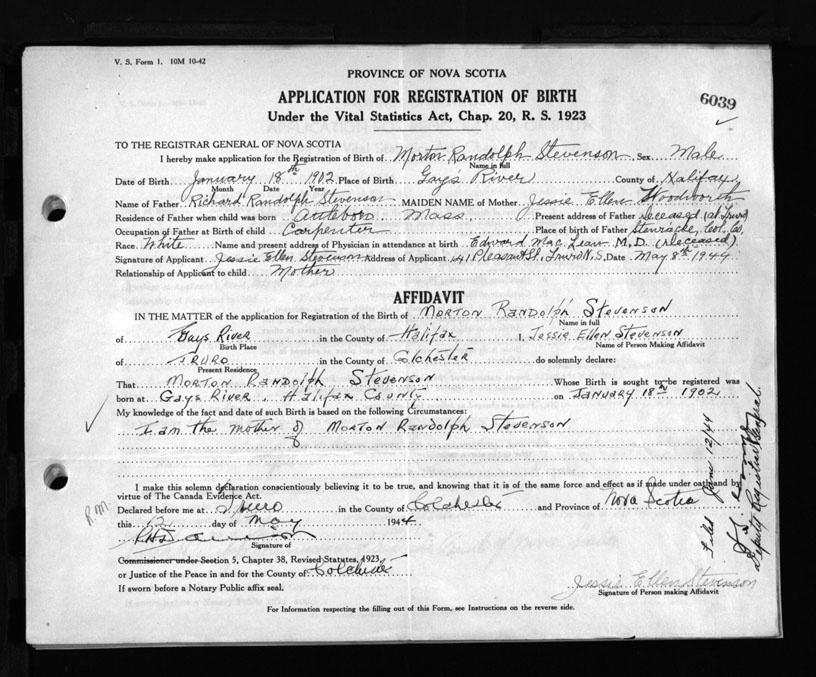 V. S. Form 1. 10M 10-42
PROVINCE OF NOVA SCOTIA
6039
APPLICATION FOR REGISTRATION OF BIRTH
Under the Vital Statistics Act, Chap. 20, R. S. 1923
TO THE REGISTRAR GENERAL OF NOVA SCOTIA
I hereby make application for the Registration of Birth of Morton Randolph Stevenson Sex Male
Name in full
Date of Birth January 18th 1902 Place of Birth Gay's River County of Halifax
Month Date Year
Name of Father Richard Randolph Stevenson MAIDEN NAME of Mother Jessie Ellen Woodworth
Residence of Father when child was born Mass. Present address of Father deceased (at Truro)
Occupation of Father at Birth of child Carpenter Place of birth of Father Col. Co.
Race White Name and present address of Physician in attendance at birth Edward Mac Lean M.D. (deceased)
Signature of Applicant Jessie Ellen Stevenson Address of Applicant 41 Pleasant St. Truro N.S. Date May 8th 1944
Relationship of Applicant to child Mother
AFFIDAVIT
IN THE MATTER of the application for Registration of the Birth of MORTON RANDOLPH STEVENSON
Name in full
of Gays River in the County of Halifax I, Jessie Ellen STEVENSON
Birth Place Name of Person Making Affidavit
of TRURO in the County of Colchester do solemnly declare:
Present Residence
That MORTON RANDOLPH STEVENSON Whose Birth is sought to be registered was
born at GAYS RIVER, HALIFAX COUNTY on JANUARY 18th 1902
My knowledge of the fact and date of such Birth is based on the following Circumstances:
I am the mother of MORTON RANDOLPH STEVENSON
I make this solemn declaration conscientiously believing it to be true, and knowing that it is of the same force and effect as if made under oath and by
virtue of The Canada Evidence Act.
R.M.
Declared before me at Truro in the County of Colchester and Province of Nova Scotia
this 12 day of May 1944
Signature of
Commissioner under Section 5, Chapter 38, Revised Statutes, 1923,
or Justice of the Peace in and for the County of Colchester
If sworn before a Notary Public affix seal.
Jessie Ellen Stevenson
Signature of Person making Affidavit
For Information respecting the filling out of this Form, see Instructions on the reverse side.
Filed June 12/44
Deputy Registrar General.